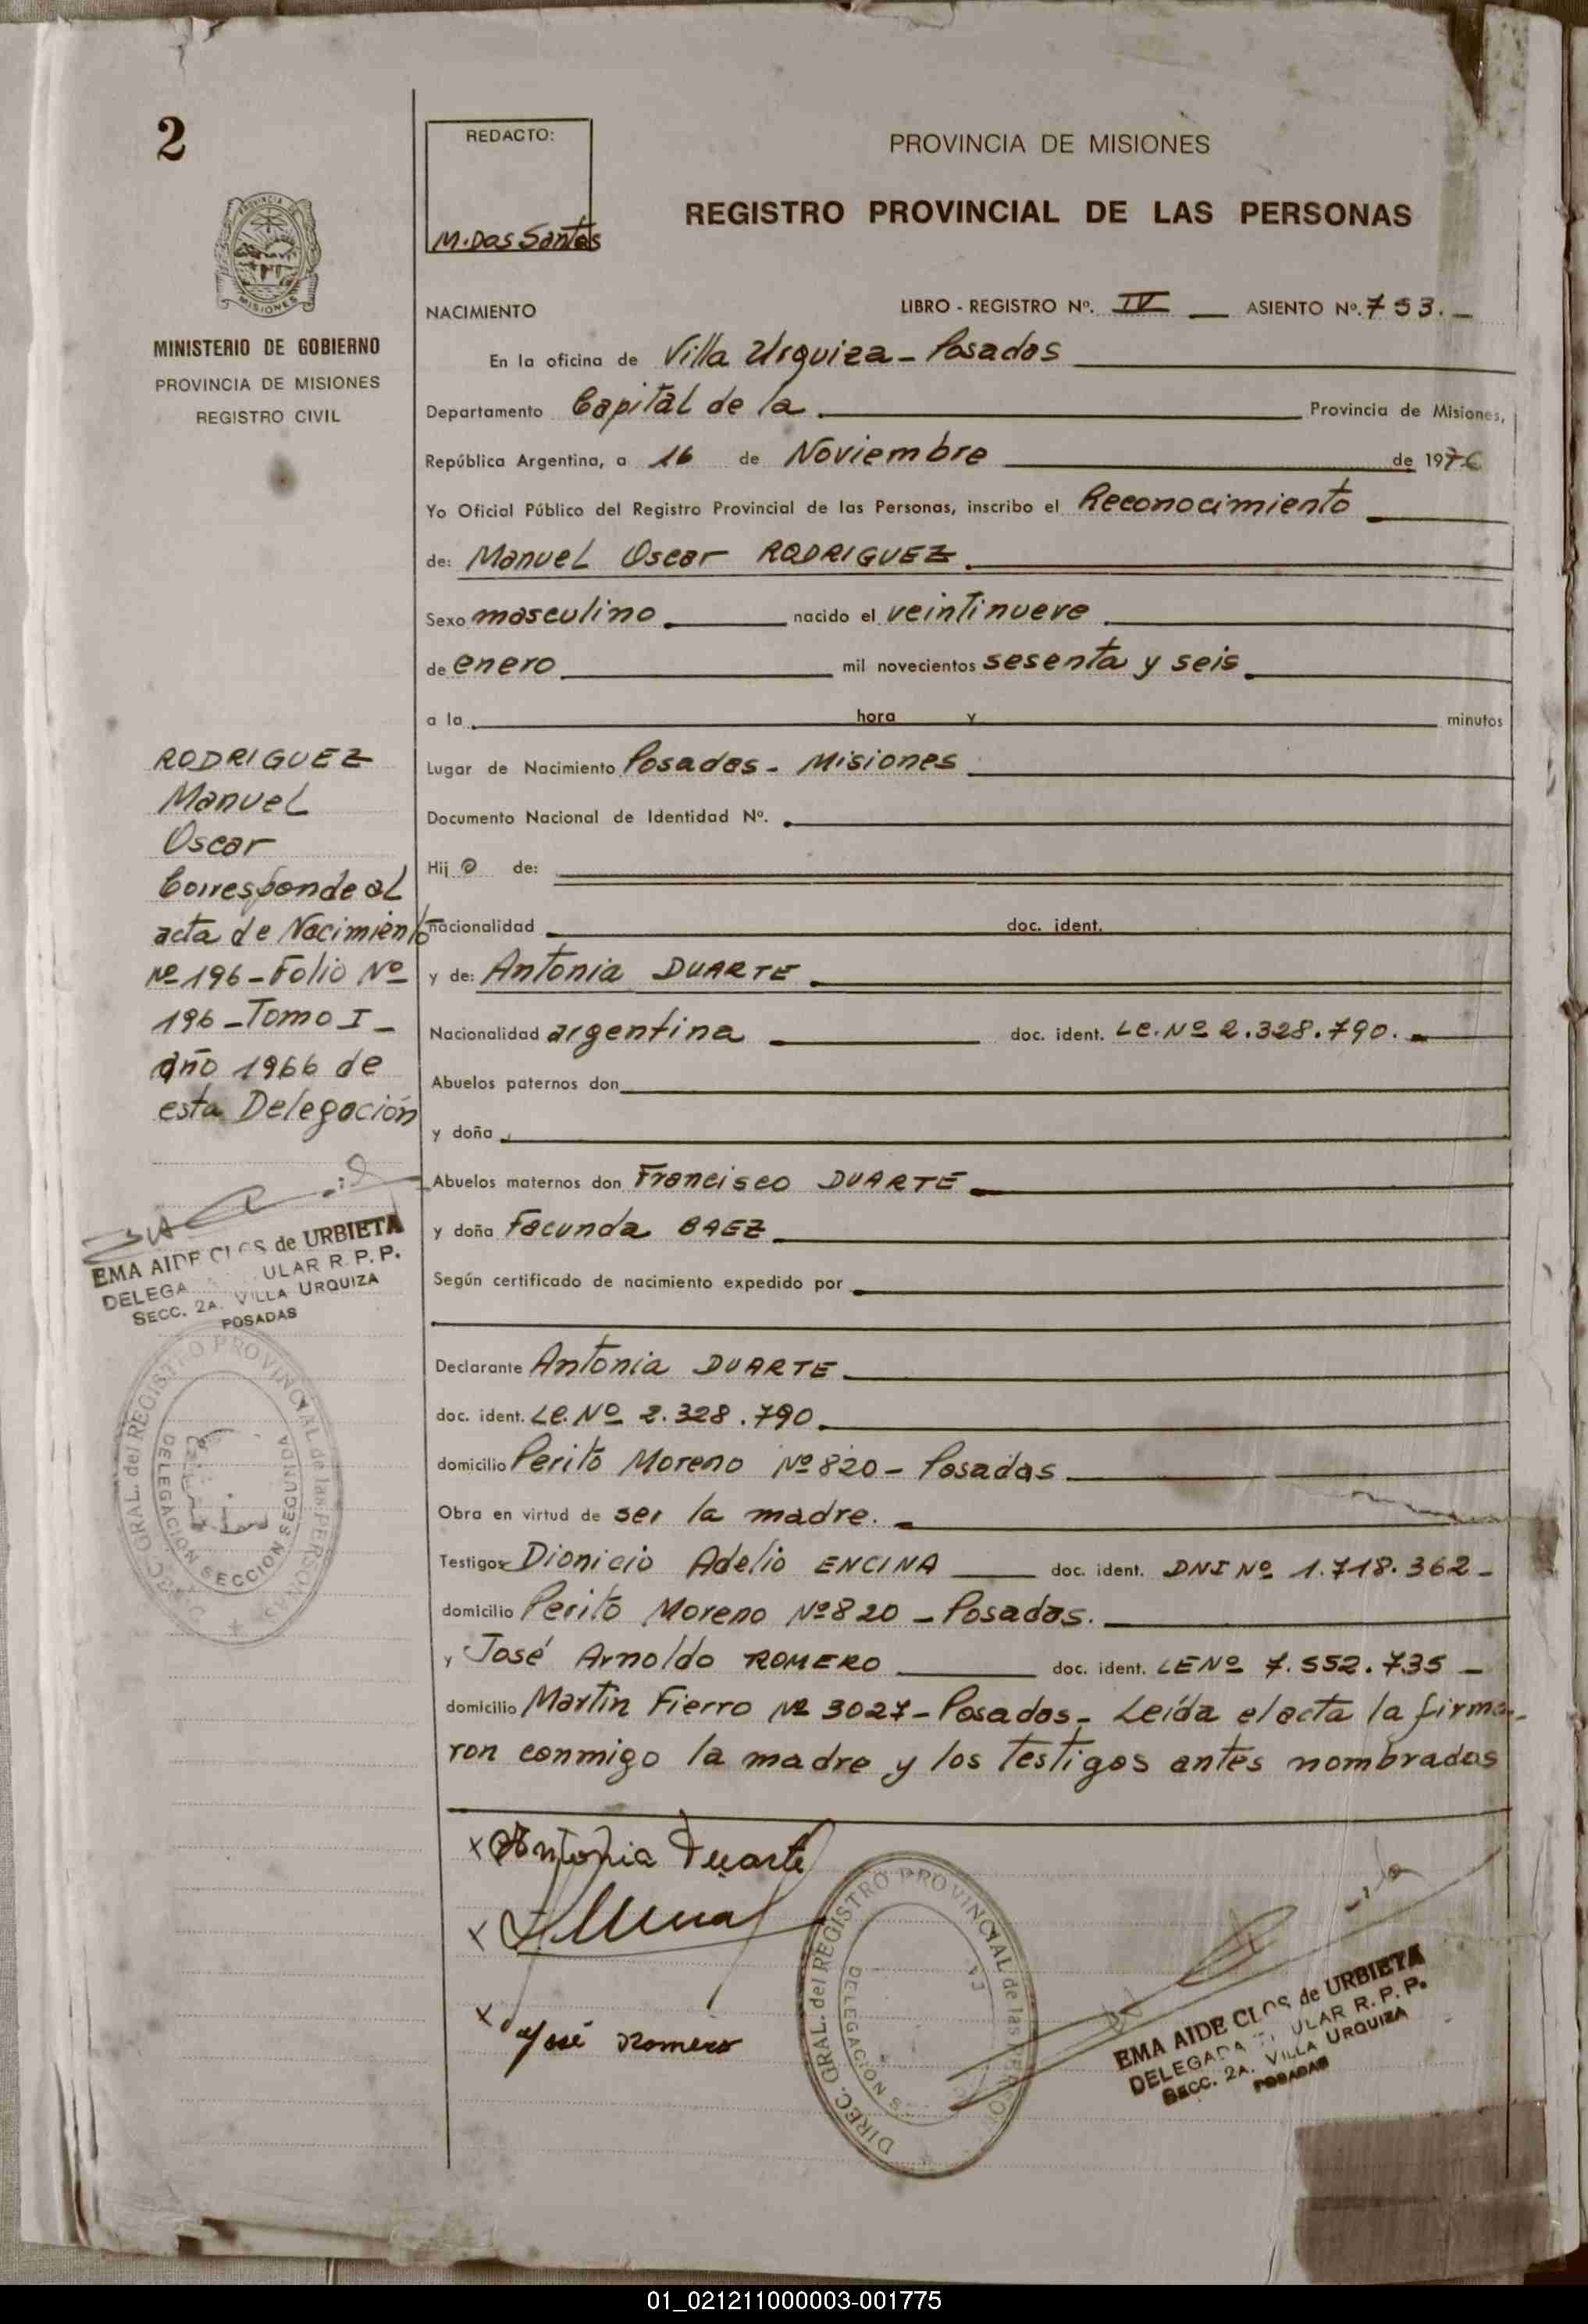 2
REDACTO:
M. Dos Santos
PROVINCIA DE MISIONES
REGISTRO PROVINCIAL DE LAS PERSONAS
PROVINCIA DE
MISIONES
MINISTERIO DE GOBIERNO
PROVINCIA DE MISIONES
REGISTRO CIVIL
NACIMIENTO LIBRO - REGISTRO Nº. IV ASIENTO Nº. 753.
En la oficina de Villa Urquiza - Posadas
Departamento Capital de la Provincia de Misiones,
República Argentina, a 16 de Noviembre de 1976
Yo Oficial Público del Registro Provincial de las Personas, inscribo el Reconocimiento
de: Manuel Oscar RODRIGUEZ.
Sexo masculino nacido el veintinueve
de enero mil novecientos sesenta y seis
a la hora y minutos
Lugar de Nacimiento Posadas - Misiones
Documento Nacional de Identidad Nº.
Hij o de:
nacionalidad doc. ident.
y de: Antonia DUARTE
Nacionalidad argentina doc. ident. Le. Nº 2.328.790.
Abuelos paternos don
y doña
Abuelos maternos don Francisco DUARTE
y doña Facunda BAEZ
Según certificado de nacimiento expedido por
Declarante Antonia DUARTE
doc. ident. Le. Nº 2.328.790
domicilio Perito Moreno Nº 820 - Posadas
Obra en virtud de ser la madre.
Testigos Dionicio Adelio ENCINA doc. ident. DNI Nº 1.718.362 -
domicilio Perito Moreno Nº 820 - Posadas.
y José Arnoldo ROMERO doc. ident. LE Nº 7.552.735 -
domicilio Martin Fierro Nº 3027 - Posadas - Leída el acta la firma-
ron conmigo la madre y los testigos antes nombrados
RODRIGUEZ
Manuel
Oscar
Corresponde al
acta de Nacimiento
Nº 196 - Folio Nº
196 - Tomo I -
año 1966 de
esta Delegación
EMA AIDE CLOS de URBIETA
DELEGA ULAR R. P. P.
SECC. 2A. VILLA URQUIZA
POSADAS
DIREC. GRAL. del REGISTRO PROVINCIAL de las PERSONAS
DELEGACION SECCION SEGUNDA
x Antonia Duarte
x
x José Romero
DIREC. GRAL. del REGISTRO PROVINCIAL de las PERSONAS
DELEGACION
EMA AIDE CLOS de URBIETA
DELEGADA ULAR R. P. P.
SECC. 2A. VILLA URQUIZA
POSADAS
01_021211000003-001775